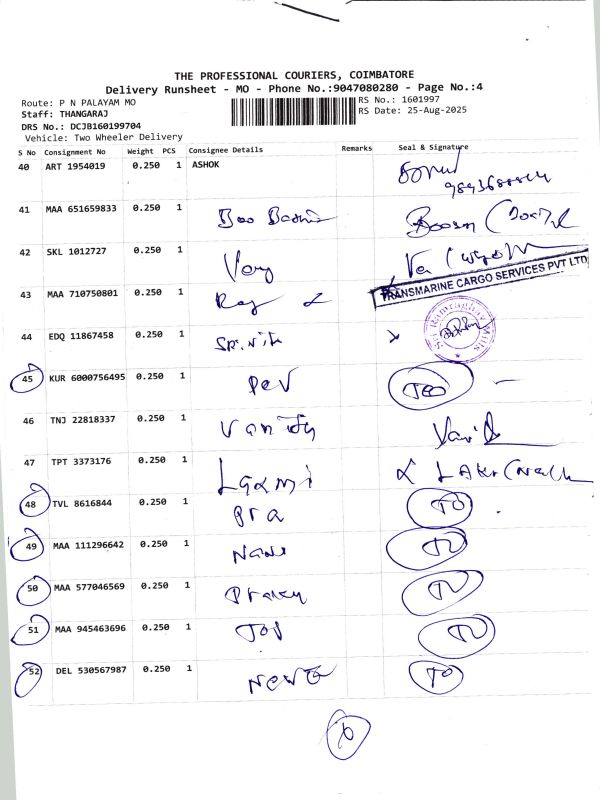 THE PROFESSIONAL COURIERS, COIMBATORE
Delivery Runsheet - MO - Phone No.:9047080280 - Page No.:4
Route: P N PALAYAM MO
RS No.: 1601997
Staff: THANGARAJ
RS Date: 25-Aug-2025
DRS No.: DCJB160199704
Vehicle: Two Wheeler Delivery
S No Consignment No Weight PCS Consignee Details Remarks Seal & Signature
40 ART 1954019 0.250 1 ASHOK
41 MAA 651659833 0.250 1
42 SKL 1012727 0.250 1 Very
TRANSMARINE CARGO SERVICES PVT LTD
43 MAA 710750801 0.250 1 Raj
44 EDQ 11867458 0.250 1
45 KUR 6000756495 0.250 1 Pev
46 TNJ 22818337 0.250 1
47 TPT 3373176 0.250 1 Laxmi
48 TVL 8616844 0.250 1 Pra TO
49 MAA 111296642 0.250 1 TO
50 MAA 577046569 0.250 1 TO
51 MAA 945463696 0.250 1 TO
52 DEL 530567987 0.250 1 TO